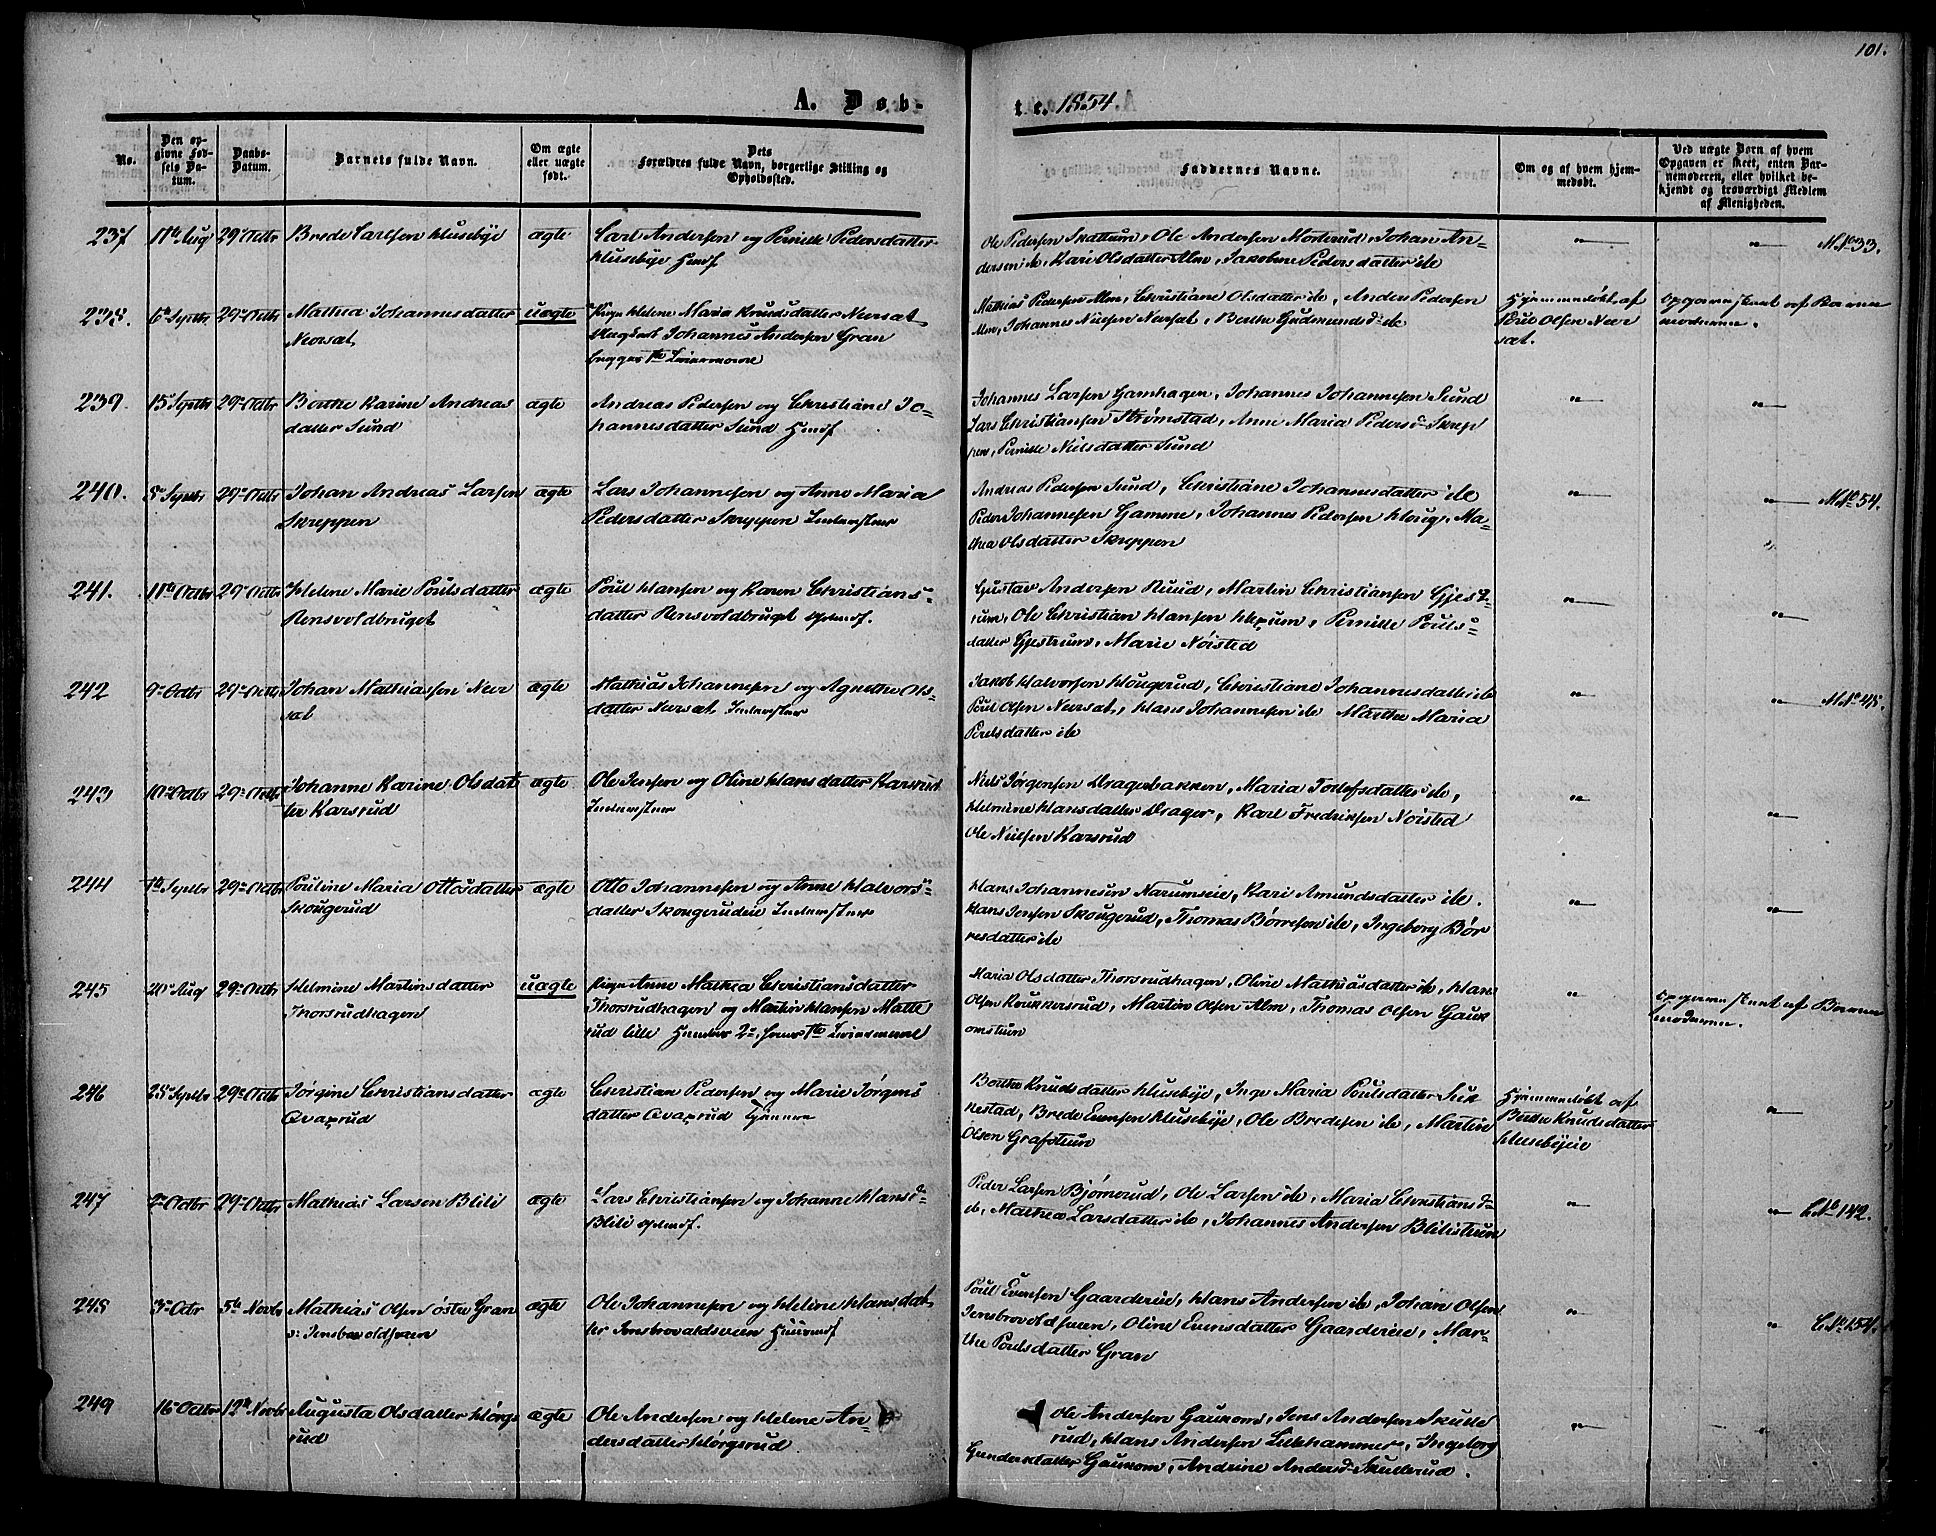 101.
A. Døb-
te. 1854.
No.
Den op-
givne Fød-
sels Da-
tum.
Daabs-
Datum.
Barnets fulde Navn.
Om ægte
eller uægte
født.
Dets
Forældres fulde Navn, borgerlige Stilling og
Opholdssted.
Faddernes Navne.
Om og af hvem hjem-
medøbt.
Ved uægte Børn af hvem
Opgaven er skeet, enten Bar-
nemoderen, eller hvilket be-
kjendt og troværdigt Medlem
af Menigheden.
237 11te Aug 29 Octbr Brede Carlsen Huusebye ægte Carl Andersen og Pernille Pedersdatter
Huusebye Huusf
Ole Pedersen Skattum, Ole Andersen Morterud, Johan An-
dersen ib, Kari Olsdatter Alm, Jakobine Pedersdatter ib
MNo 33.
238. 6te Septbr 29 Octbr Mathea Johannesdatter uægte Pige Helene Maria Knudsdatter Neersæt
Neersæt
Ungkarl Johannes Andersen Gran
begges 1ste Leiermaal
Mathias Pedersen Alm, Christiane Olsdatter ib, Anders Pedersen
Alm, Johannes Nielsen Neersæt, Berthe Gudmundsd. ib
Hjemmedøbt af
Poul Olsen Neer
sæt.
Opgaven skeet af Barne
moderen.
239. 15 Septbr 29 Octbr Berthe Karine Andreas ægte Andreas Pedersen og Christiane Jo-
datter Sund
hannesdatter Sund Huusf
Johannes Larsen Gamhagen, Johannes Johannesen Sund
Lars Christiansen Strømstad, Anne Maria Pedersd Skrep
pen, Pernille Nielsdatter Sund
240. 5 Septbr 29 Octbr Johan Andreas Larsen ægte Lars Johannesen og Anne Maria
Skreppen
Pedersdatter Skreppen Inderster
Andreas Pedersen Sund, Christiane Johannesdatter ib
Peder Johannesen Gamme, Johannes Pedersen Houg, Ma-
thea Olsdatter Skreppen
MNo 54.
241. 11te Octbr 29 Octbr Helene Marie Poulsdatter ægte Poul Hansen og Karen Christians-
Rensvoldbruget
datter Rensvoldbruget
Gustav Andersen Ruud, Martin Christiansen Gjest-
rum, Ole Christian Hansen Hexum, Pernille Pouls-
datter Gjestrum, Marie Nøisted
242 9 Octbr 29 Octbr Johan Mathiassen Neer ægte Mathias Johannesen og Agnethe Ols-
sæt
datter Neersæt Inderster
Jakob Halvorsen Hougerud, Christiane Johannesdatter ib
Poul Olsen Neersæt, Hans Johannesen ib Marthe Maria
Poulsdatter ib
MNo 48.
243 10 Octbr 29 Octbr Johanne Karine Olsdat ægte Ole Jensen og Oline Hansdatter Karsrud
ter Karsrud
Inderster
Niels Jørgensen Dragerbakken, Maria Tollefsdatter ib,
Helmine Hansdatter Drager, Karl Fredriksen Nøisted
Ole Nielsen Karsrud
244 7de Septbr 29 Octbr Pouline Maria Ottosdatter ægte Otto Johannesen og Anne Halvors-
Skougerud
datter Skougerudeie Inderster
Hans Johannesen Narumseie, Kari Amundsdatter ib.
Hans Jensen Skougerud, Thomas Børresen ib, Ingeborg Bør
resdatter ib
245 20 Aug 29 Octbr Helmine Martinsdatter uægte Pige Anne Mathea Christiansdatter
Thorsrudhagen
Thorsrudhagen og Martin Hansen Matte
rud lille Hendes 2., hans 1ste Leiermaal
Maria Olsdatter Thorsrudhagen, Oline Mathiasdatter ib, Hans
Olsen Krukkersrud, Martin Olsen Alm, Thomas Olsen Gauk
omstuen
Opgaven skeet af Barne
moderen.
246 25 Septbr 29 Octbr Jørgine Christiansdatter ægte Christian Pedersen og Marie Jørgens
Qvaprud
datter Qvaprud
Berthe Knudsdatter Huusebye, Inge Maria Poulsdatter Suk
kestad, Brede Evensen Huusebye, Ole Bredesen ib, Martin
Olsen Grafstuen
Hjemmedøbt af
Berthe Knudsdatter
Huusebyeie
247 2 Octbr 29 Octbr Mathias Larsen Blili ægte Lars Christiansen og Johanne Hansd
Blili
Peder Larsen Bjørnerud, Ole Larsen ib, Maria Christiansd
ib, Mathea Larsdatter ib, Johannes Andersen Blilistuen
CNo 142.
248 3 Octbr 5te Novbr Mathias Olsen østre Gran ægte Ole Johannesen og Helene Hansdat
ter
Poul Evensen Gaardereie, Hans Andersen ib, Johan Olsen
Oline Evensdatter Gaardereie, Mar-
the Poulsdatter Gran
CNo 154.
249 16 Octbr 12te Novbr Augusta Olsdatter Hørgs ægte Ole Andersen og Helene An
rud
dersdatter Hørgsrud
Ole Andersen Gaukom, Jens Andersen Skulle
rud, Hans Andersen Lillehammer, Ingeborg
Gundersdatter Gaukom, Andrine Andersd Skullerud.